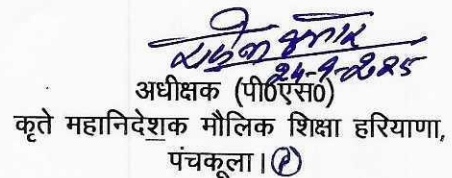 राकेश कुमार
24-9-2025
अधीक्षक (पी0एस0)
कृते महानिदेशक मौलिक शिक्षा हरियाणा,
पंचकूला। P